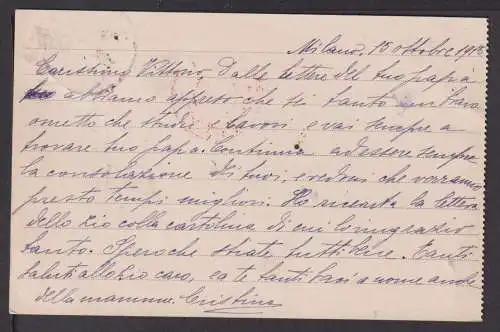 Milano, 15 ottobre 191
Carissimo Vittorio, Dalle lettere del tuo papà
abbiamo appreso che sei tanto un bravo
ometto che studi e lavori e vai sempre a
trovare tuo papa. Continua ad essere sempre
la consolazione di tuoi, e vedrai che verranno
presto tempi migliori. Ho ricevuta la lettera
dello zio colla cartolina di cui lo ringrazio
tanto. Spero che stiate tutti bene. Tanti
saluti allo zio caro, e a te tanti baci a nome anche
della mamma. Cristina